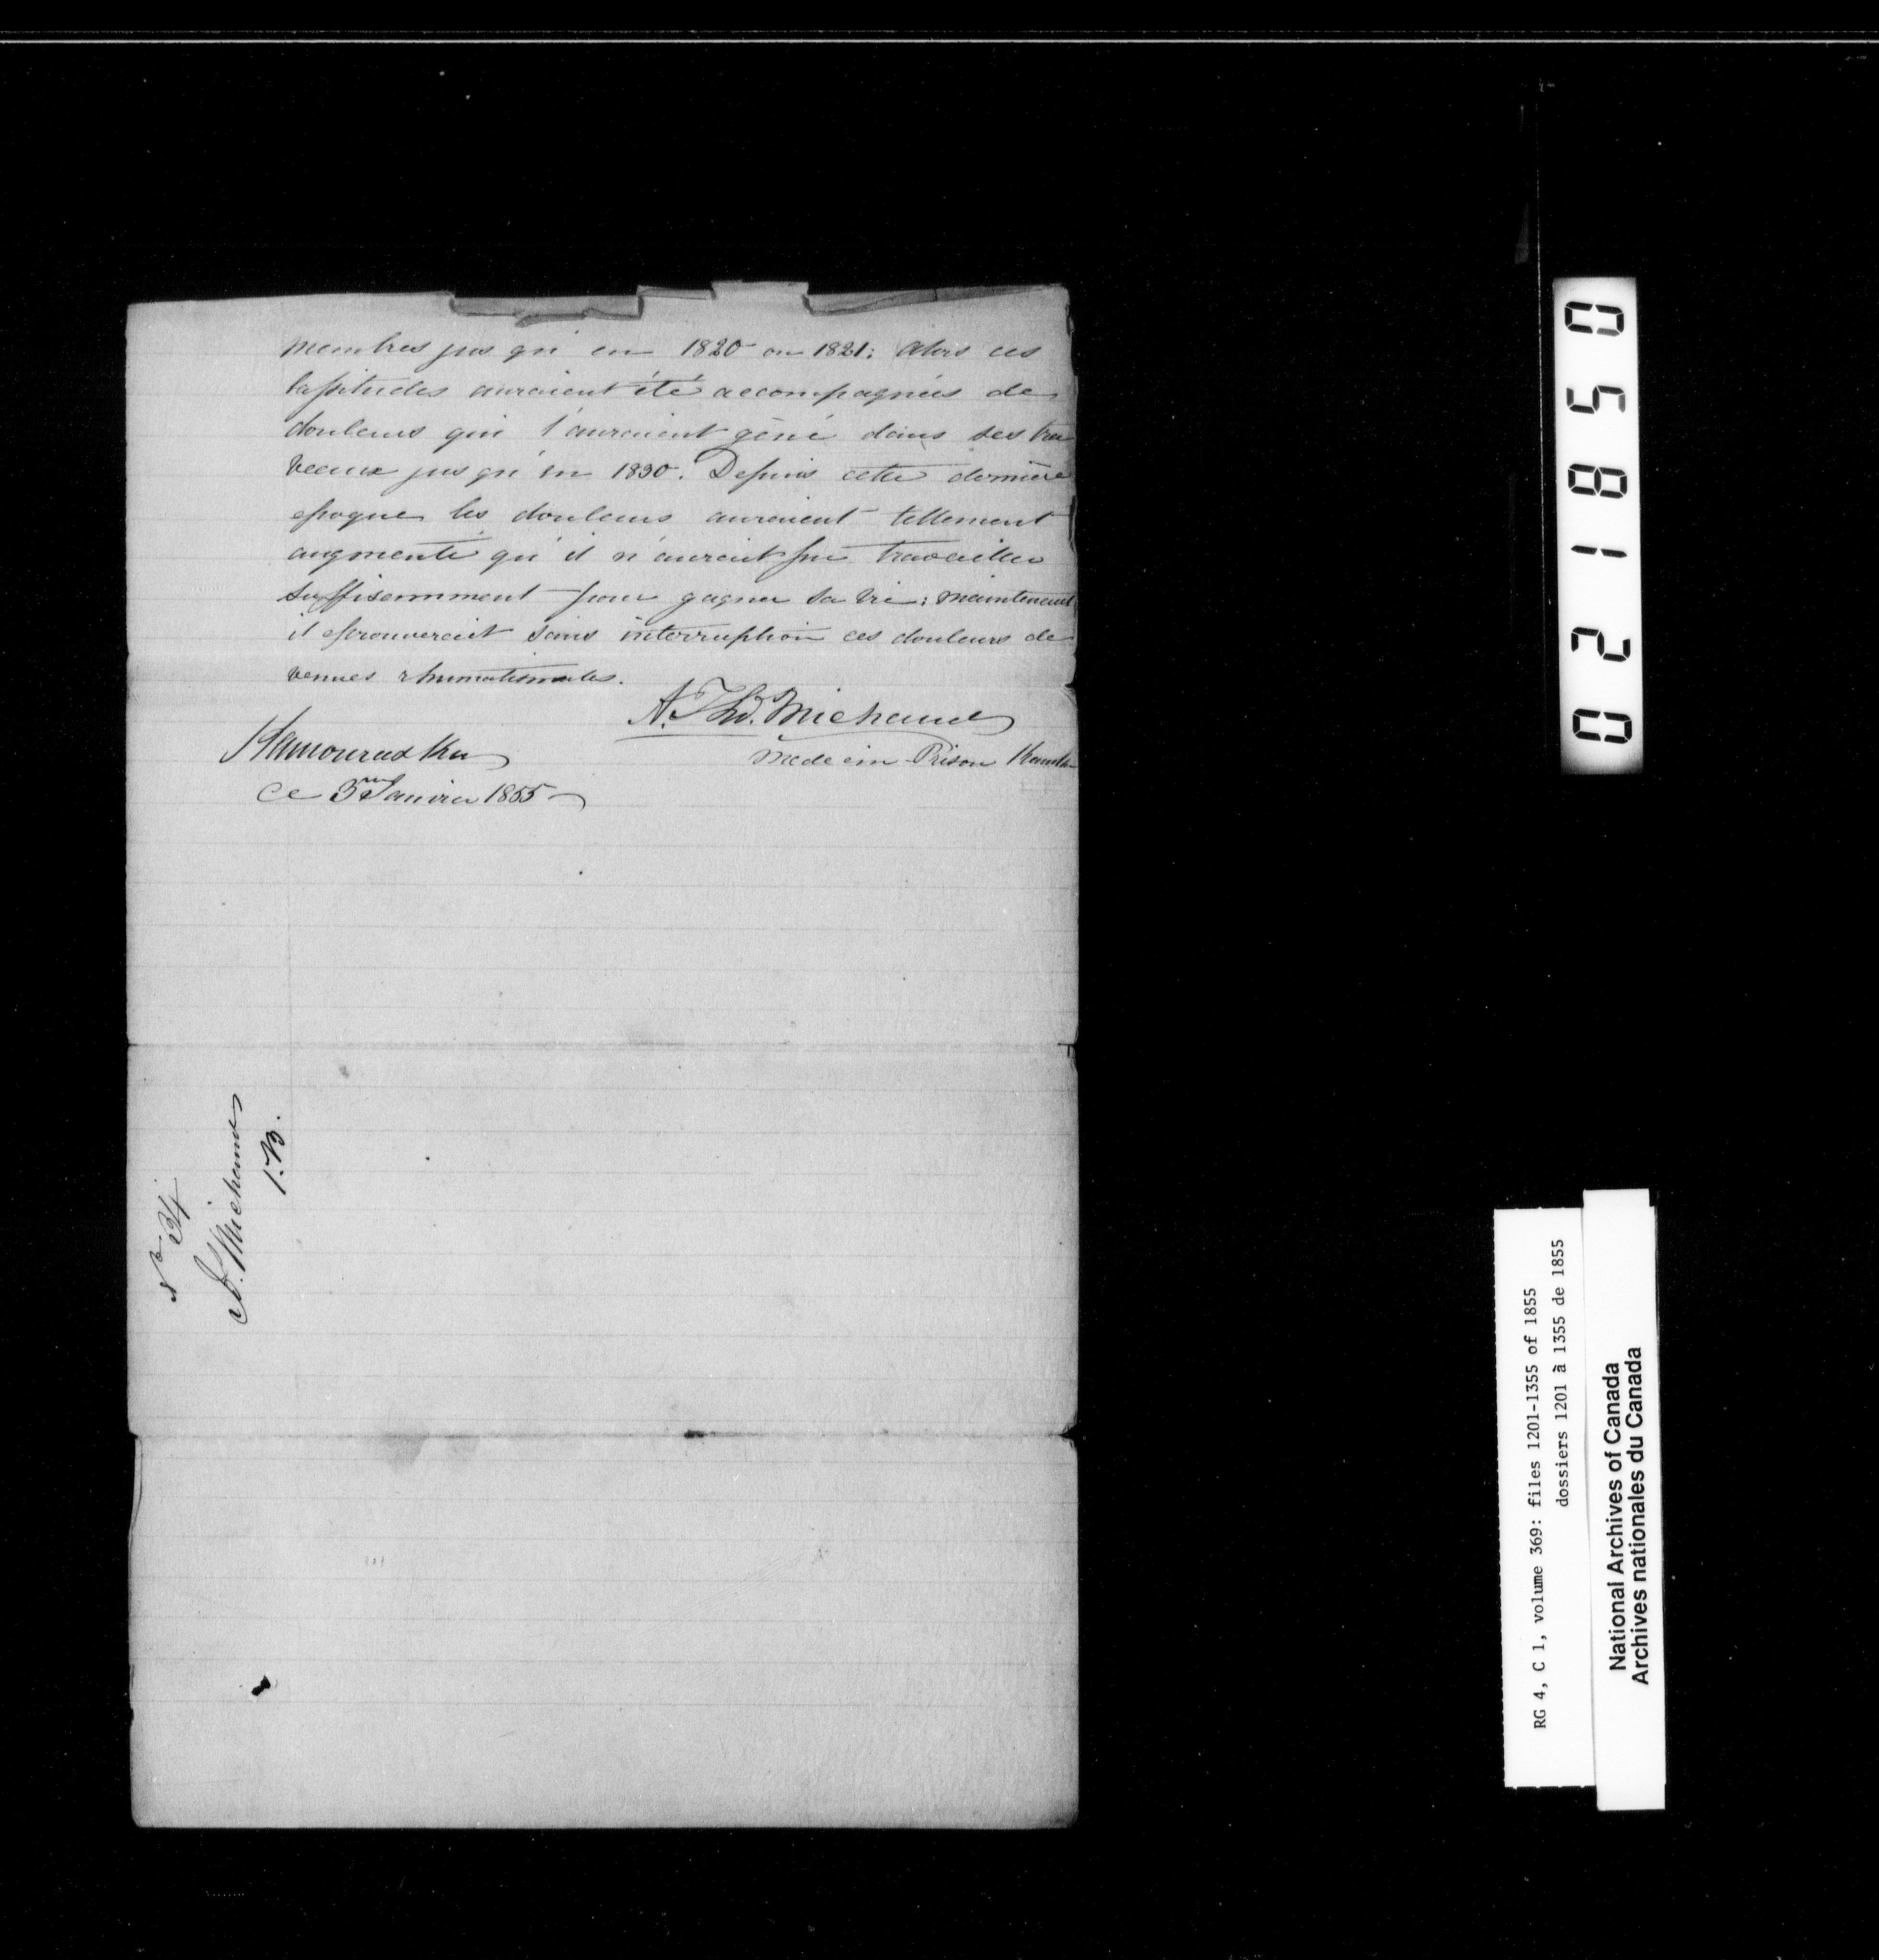 membres jus qu'en 1820 ou 1821: alors ces
lassitudes auraient été accompagnées de
douleurs qui l'auraient gèné dans ses tra
veaux jus qu'en 1830. Depuis cette dernière
epoque les douleurs auraient tellement
augmenté qu'il n'aurait pu travailler
suffisemment pour gagner sa vie: maintenant
il eprouverait sans interruption ces douleurs de
venues rhumatismales.
A. Th. Michaud
Medecin Prison Kam
Kamouraska
Ce 3me Janvier 1855
No 34
A. Michaud
1. B.
021850
RG 4, C 1, volume 369: files 1201-1355 of 1855
dossiers 1201 à 1355 de 1855
National Archives of Canada
Archives nationales du Canada